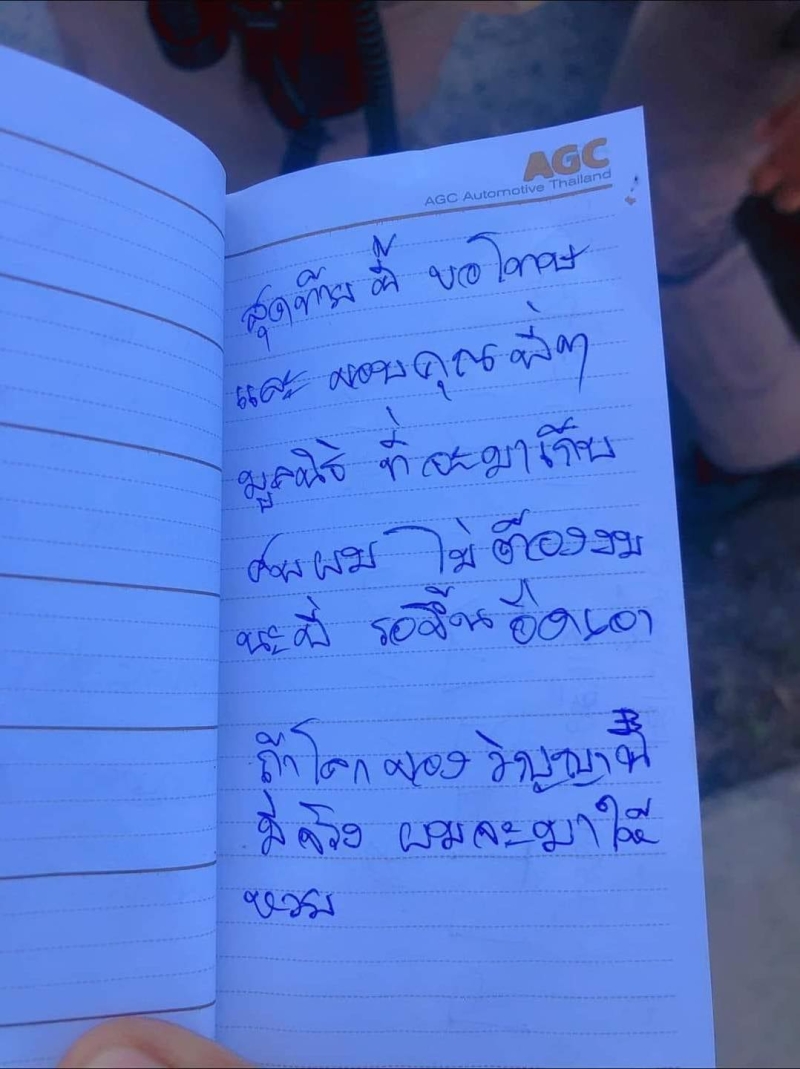 AGC
AGC Automotive Thailand
สุดท้ายนี้ ขอโทษ
และ ขอบคุณพี่ๆ
มูลนิธิ ที่จะมาเก็บ
ศพผม ไม่ต้องงม
นะพี่ รอขึ้นอืดเอา
ถ้าโลกของวิญญาณ
มีจริง ผมจะมาให้
หวย